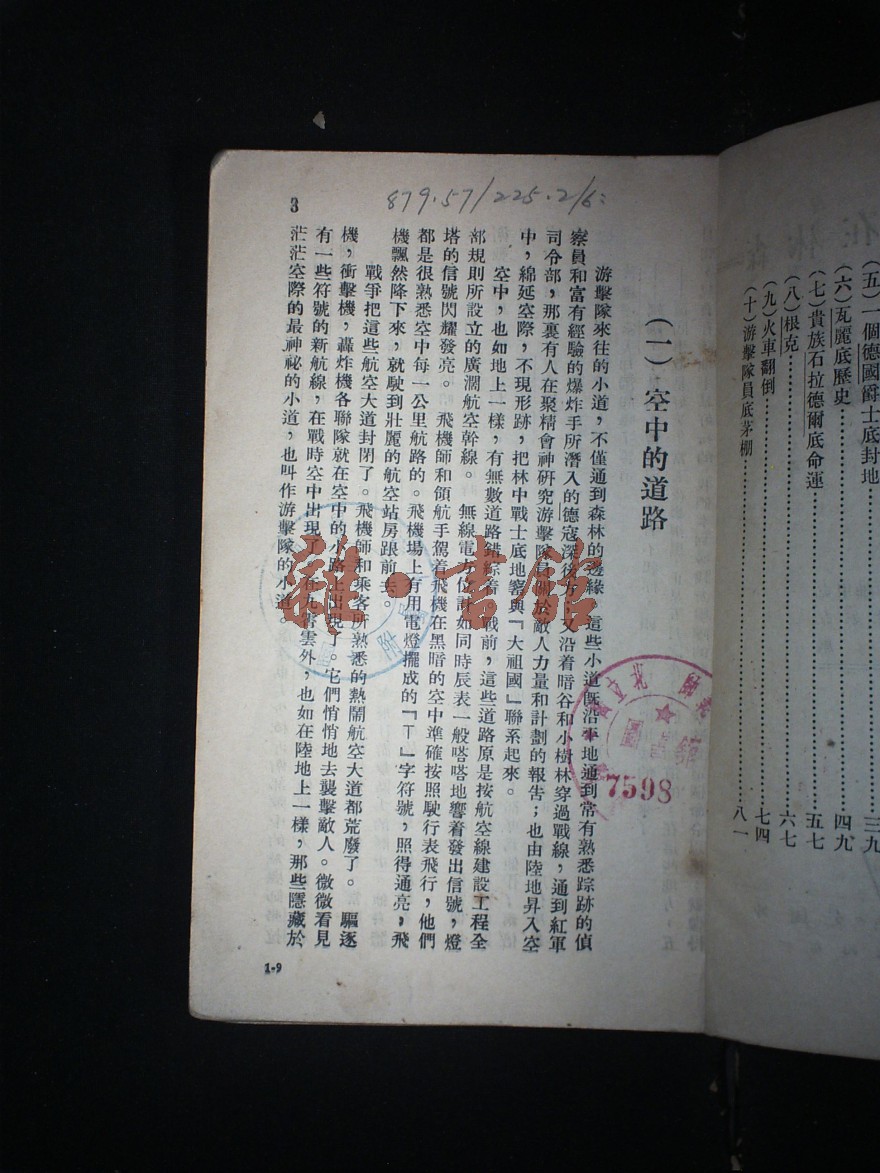 (五)一個德國爵士底封地…………三九
(六)瓦麗底歷史…………四九
(七)貴族石拉德爾底命運…………五七
(八)根克…………六七
(九)火車翻倒…………七四
(十)游擊隊員底茅棚…………八一
879.57/225.2/6
3
(一) 空中的道路
游擊隊來往的小道,不僅通到森林的邊緣 這些小道既沿平地通到常有熟悉踪跡的偵
察員和富有經驗的爆炸手所潛入的德寇深後方,又沿着暗谷和小樹林穿過戰線,通到紅軍
司令部,那裏有人在聚精會神研究游擊隊員關於敵人力量和計劃的報告;也由陸地昇入空
中,綿延空際,不現形跡,把林中戰士底地窖與『大祖國』聯系起來。
空中,也如地上一樣,有無數道路錯綜着 戰前,這些道路原是按航空線建設工程全
部規則所設立的廣濶航空幹線。無線電方位計如同時辰表一般嗒嗒地響着發出信號,燈
塔的信號閃耀發亮。飛機師和領航手駕着飛機在黑暗的空中準確按照駛行表飛行,他們
都是很熟悉空中每一公里航路的。飛機場上有用電燈擺成的『T』字符號,照得通亮,飛
機飄然降下來,就駛到壯麗的航空站房跟前去。
戰爭把這些航空大道封閉了。飛機師和乘客所熟悉的熱鬧航空大道都荒廢了。驅逐
機,衝擊機,轟炸機各聯隊就在空中的小路上出現了。它們悄悄地去襲擊敵人。微微看見
有一些符號的新航線,在戰時空中出現了 在九霄雲外,也如在陸地上一樣,那些隱藏於
茫茫空際的最神祕的小道,也叫作游擊隊的小道
1-9
雜·書館
7598